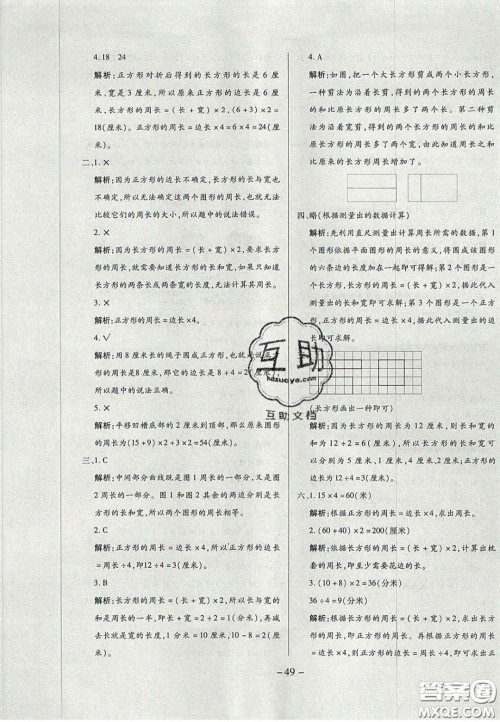 4. 18 24
解析:正方形对折后得到的长方形的长是 6 厘
米、宽是 3 厘米,所以原来正方形的边长是 6
厘米。长方形的周长=(长+宽)×2=(6+3)×2=
18(厘米)。正方形的周长=边长×4=6×4=24(厘米)。
二、1. ×
解析:因为正方形的边长不确定,长方形的长与宽也
不确定,所以无法确定这两个图形的周长与周长
的大小,所以题中的说法错误。
2. ×
解析:因为长方形的周长=(长+宽)×2,要求长方
形的周长,就要知道长方形的长和宽,如果只知道
长方形的两条长或两条宽,无法计算其周长。
3. ×
解析:正方形的周长=边长×4。
4. √
解析:用 8 厘米长的绳子围成正方形,正方形的周
长是 8 厘米,那它的边长是 8÷4=2(厘米),所
以题中的说法正确。
5. ×
解析:平移凹槽底部的 2 厘米到顶部,那么原来图形
的周长为(15+9)×2+2×2=52(厘米)。
三、1. C
解析:中间部分曲线既是图 1 周长的一部分,又是图
2 周长的一部分。图 1 和图 2 周长的两边分别是长
方形的长和宽,所以这两个图形周长一样长。
2. C
解析:正方形的周长=边长×4,所以正方形的边长
=周长÷4,即12÷4=3(厘米)。
3. B
解析:长方形的周长=(长+宽)×2,所以长与宽的
和是周长的一半,即20÷2=10(分米),再减去
宽就是长方形的长,1 分米=10 厘米,10-8=2(分
米)。
4. A
解析:如图,把一个大长方形剪成两个小长方形,
一种剪法为沿着长剪,长方形的周长的和比
原长方形的周长多了两个长。第二种剪
法为沿着宽剪,长方形的周长的和比原
长方形的周长多了两个宽。所以周长的和比
原来长方形周长增加了。
四、略(根据测量出的数据计算)
解析:先利用直尺测量出计算周长所需的数据,第 1
个图形依据平面图形的周长的意义,将围成该图形
的六条边的长度加在一起即可得解;第 2 个图形是一
个正方形,正方形的周长=边长×4,据此代入测量
出的边长的长度即可得解;第 3 个图形是一个长方
形,长方形的周长=(长+宽)×2,据此代入测量出
的长和宽即可求解。
(长方形画出一种即可)
解析:因为长方形的周长为 12 厘米,则长方形
的长和宽的和为 12÷2=6(厘米),所以长方形的
长和宽可以为5厘米、1 厘米或4厘米、2 厘米;因为
正方形的周长为 12 厘米,所以正方形的边长为
12÷4=3(厘米)。
六、1. 15×4=60(米)
解析:根据正方形的周长=边长×4,求出周长。
2. (60+40)×2=200(厘米)
解析:依据长方形的周长=(长+宽)×2,计算出枕
套的周长,即至少需要花边的长度。
3. (10+8)×2=36(分米)
36÷4=9(分米)
解析:先根据长方形的周长=(长+宽)×2,
求出长方形的周长。再根据正方形的周长
=边长×4,用求得的周长除以 4 就是正方形的边长。
互助
hdzuoye.com
互助文档
- 49 -
答案圈
MXQE.COM